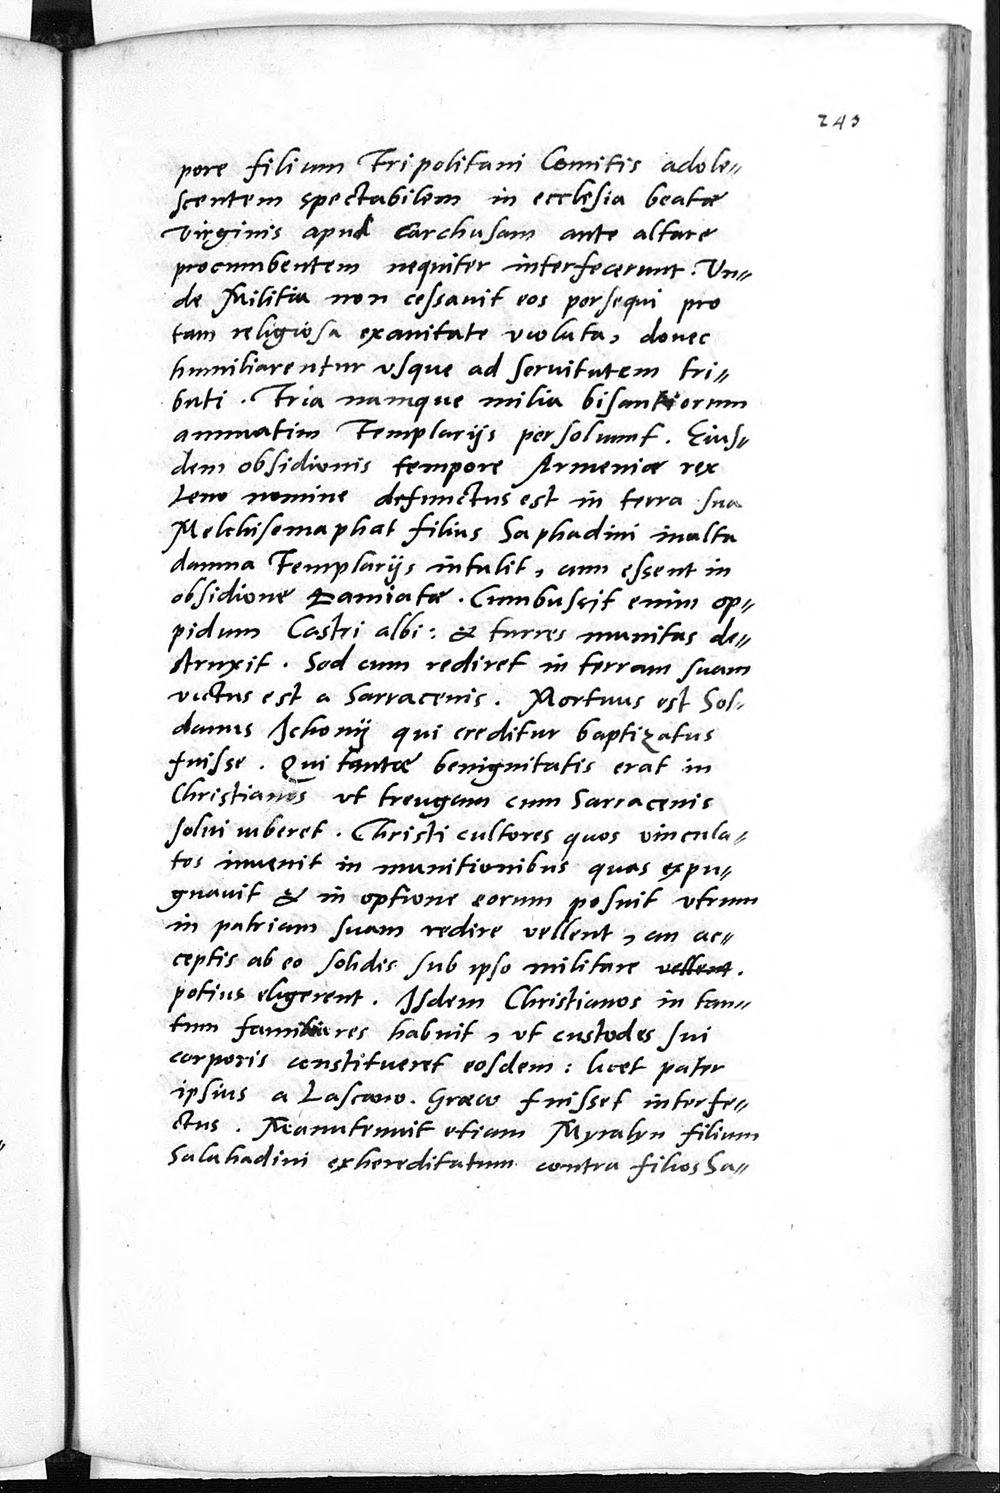 243
pore filium Tripolitani Comitis adole„
scentem spectabilem in ecclesia beatæ
Virginis apud Carchusam ante altare
procumbentem nequiter interfecerunt. Un„
de Militia non cessavit eos persequi pro
tam religiosa exanitate violata, donec
humiliarentur vsque ad servitutem tri„
buti. Tria namque milia bisantiorum
annuatim Templarijs persolvunt. Eius„
dem obsidionis tempore Armeniæ rex
Leno nomine defunctus est in terra sua
Melchisemaphat filius Saphadini multa
damna Templarijs intulit, cum essent in
obsidione Damiatæ. Cumbussit enim op„
pidum Castri albi: & turres munitas de„
struxit. Sed cum rediret in terram suam
victus est a Sarracenis. Mortuus est Sol„
danus Ichonij qui creditur baptizatus
fuisse. Qui tantæ benignitatis erat in
Christianos vt treugam cum Sarracenis
solui iuberet. Christi cultores quos vincula„
tos invenit in munitionibus quas expu„
gnauit & in optione eorum posuit vtrum
in patriam suam redire vellent, an ac„
ceptis ab eo solidis sub ipso militare vellent.
potius eligerent. Isdem Christianos in tan„
tum familiares habuit, vt custodes sui
corporis constitueret eosdem: licet pater
ipsius a Lascaro. Græco fuisset interfe„
ctus. Manutenuit etiam Myralyn filium
Salahadini exhereditatum contra filios Sa„